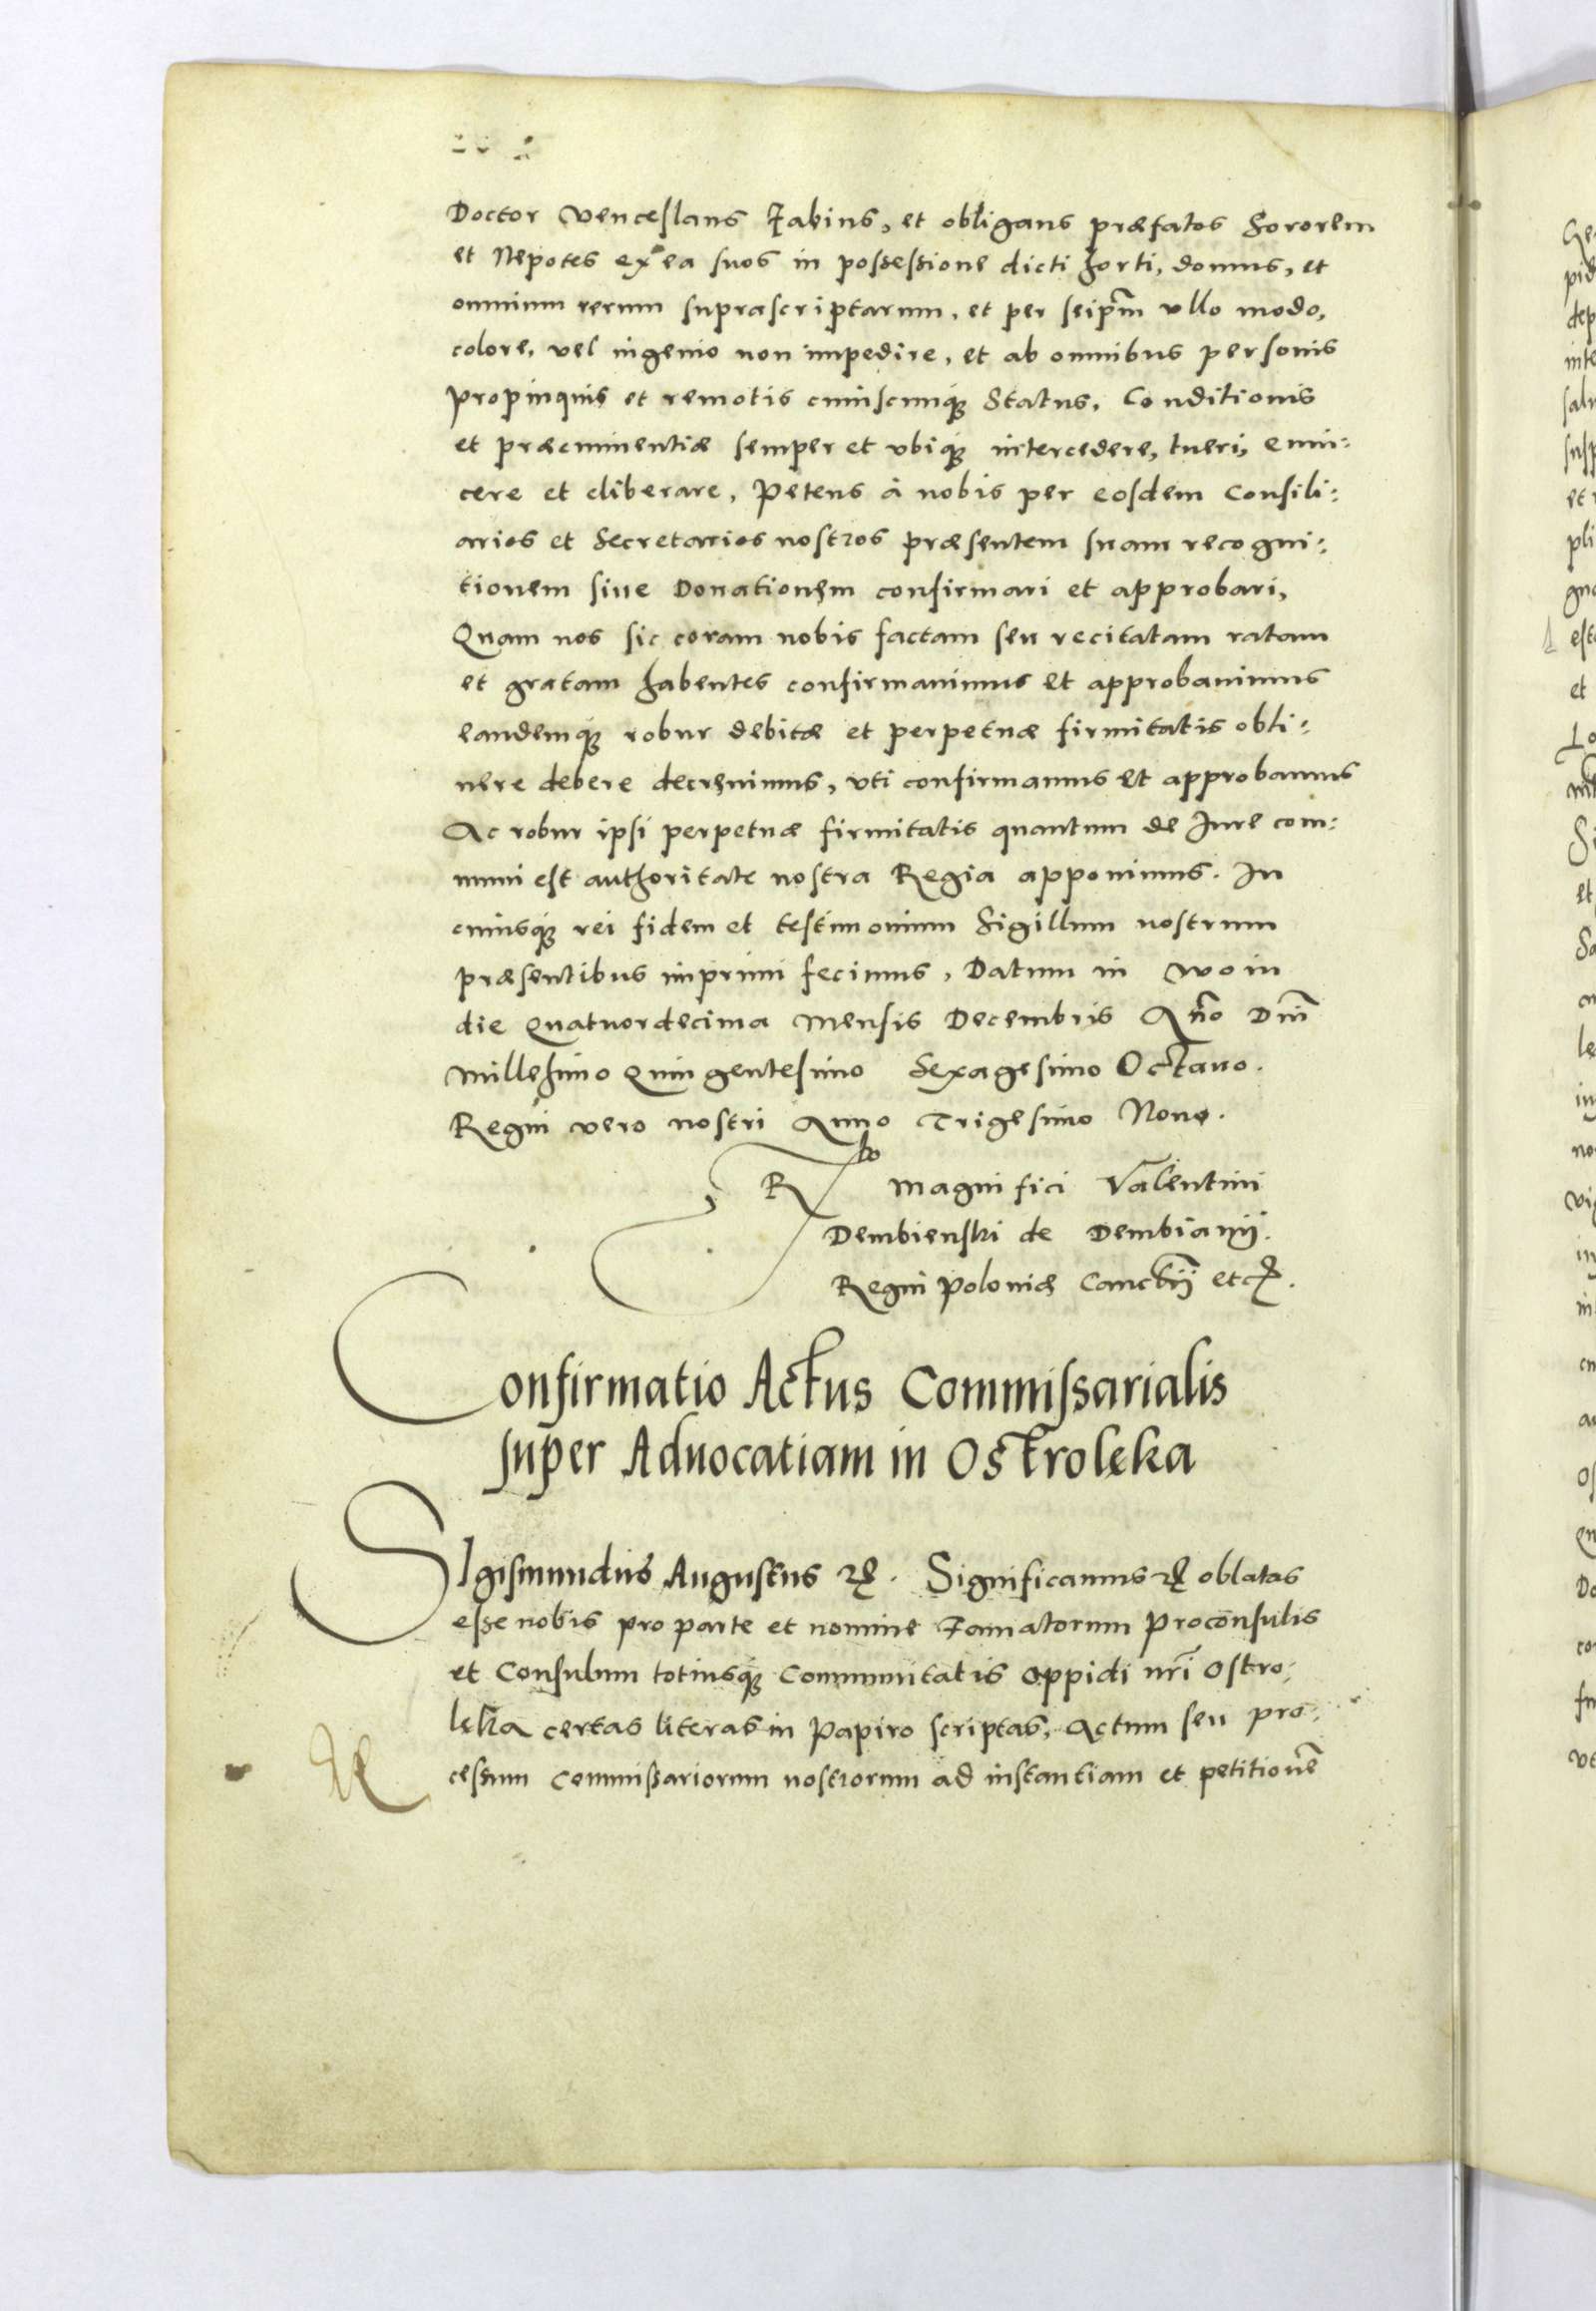 Doctor Venceslaus Fabius, et obligans præfatos Sororem
et Nepotes ex ea suos in possessione dicti horti, domus, et
omnium rerum suprascriptarum, et per seipm̃ ullo modo,
colore, vel ingenio non impedire, et ab omnibus personis
propinquis et remotis cuiuscunq; Status, Conditionis
et præeminentiæ semper et ubiq; intercedere, tueri, evin:
cere et eliberare, Petens à nobis per eosdem Consili:
arios et Secretarios nostros præsentem suam recogni:
tionem sive Donationem confirmari et approbari,
Quam nos sic coram nobis factam seu recitatam ratam
et gratam habentes confirmavimus et approbavimus
eandemq; robur debitæ et perpetuæ firmitatis obti:
nere debere decrevimus, vti confirmamus et approbamus
Ac robur ipsi perpetuæ firmitatis quantum de Jure com:
muni est authoritate nostra Regia apponimus. In
cuiusq; rei fidem et testimonium Sigillum nostrum
præsentibus imprimi fecimus, Datum in Woin
die Quatuordecima Mensis Decembris Añno Dñi
Millesimo Quingentesimo Sexagesimo Octavo.
Regni vero nostri Anno Trigesimo Nono.
Rᵒ Magnifici Valentini
Dembienski de Dembianij.
Regni Poloniæ Cancẽlrij etc.
Confirmatio Actus Commissarialis
super Advocatiam in Ostrolęka
SIgismundus Augustus etc. Significamus etc oblatas
esse nobis pro parte et nomine Famatorum Proconsulis
et Consulum totiusq; Communitatis Oppidi nr̃i Ostro:
lęka certas literas in Papiro scriptas, Actum seu pro:
cessum Commissariorum nostrorum ad instantiam et petitionẽ